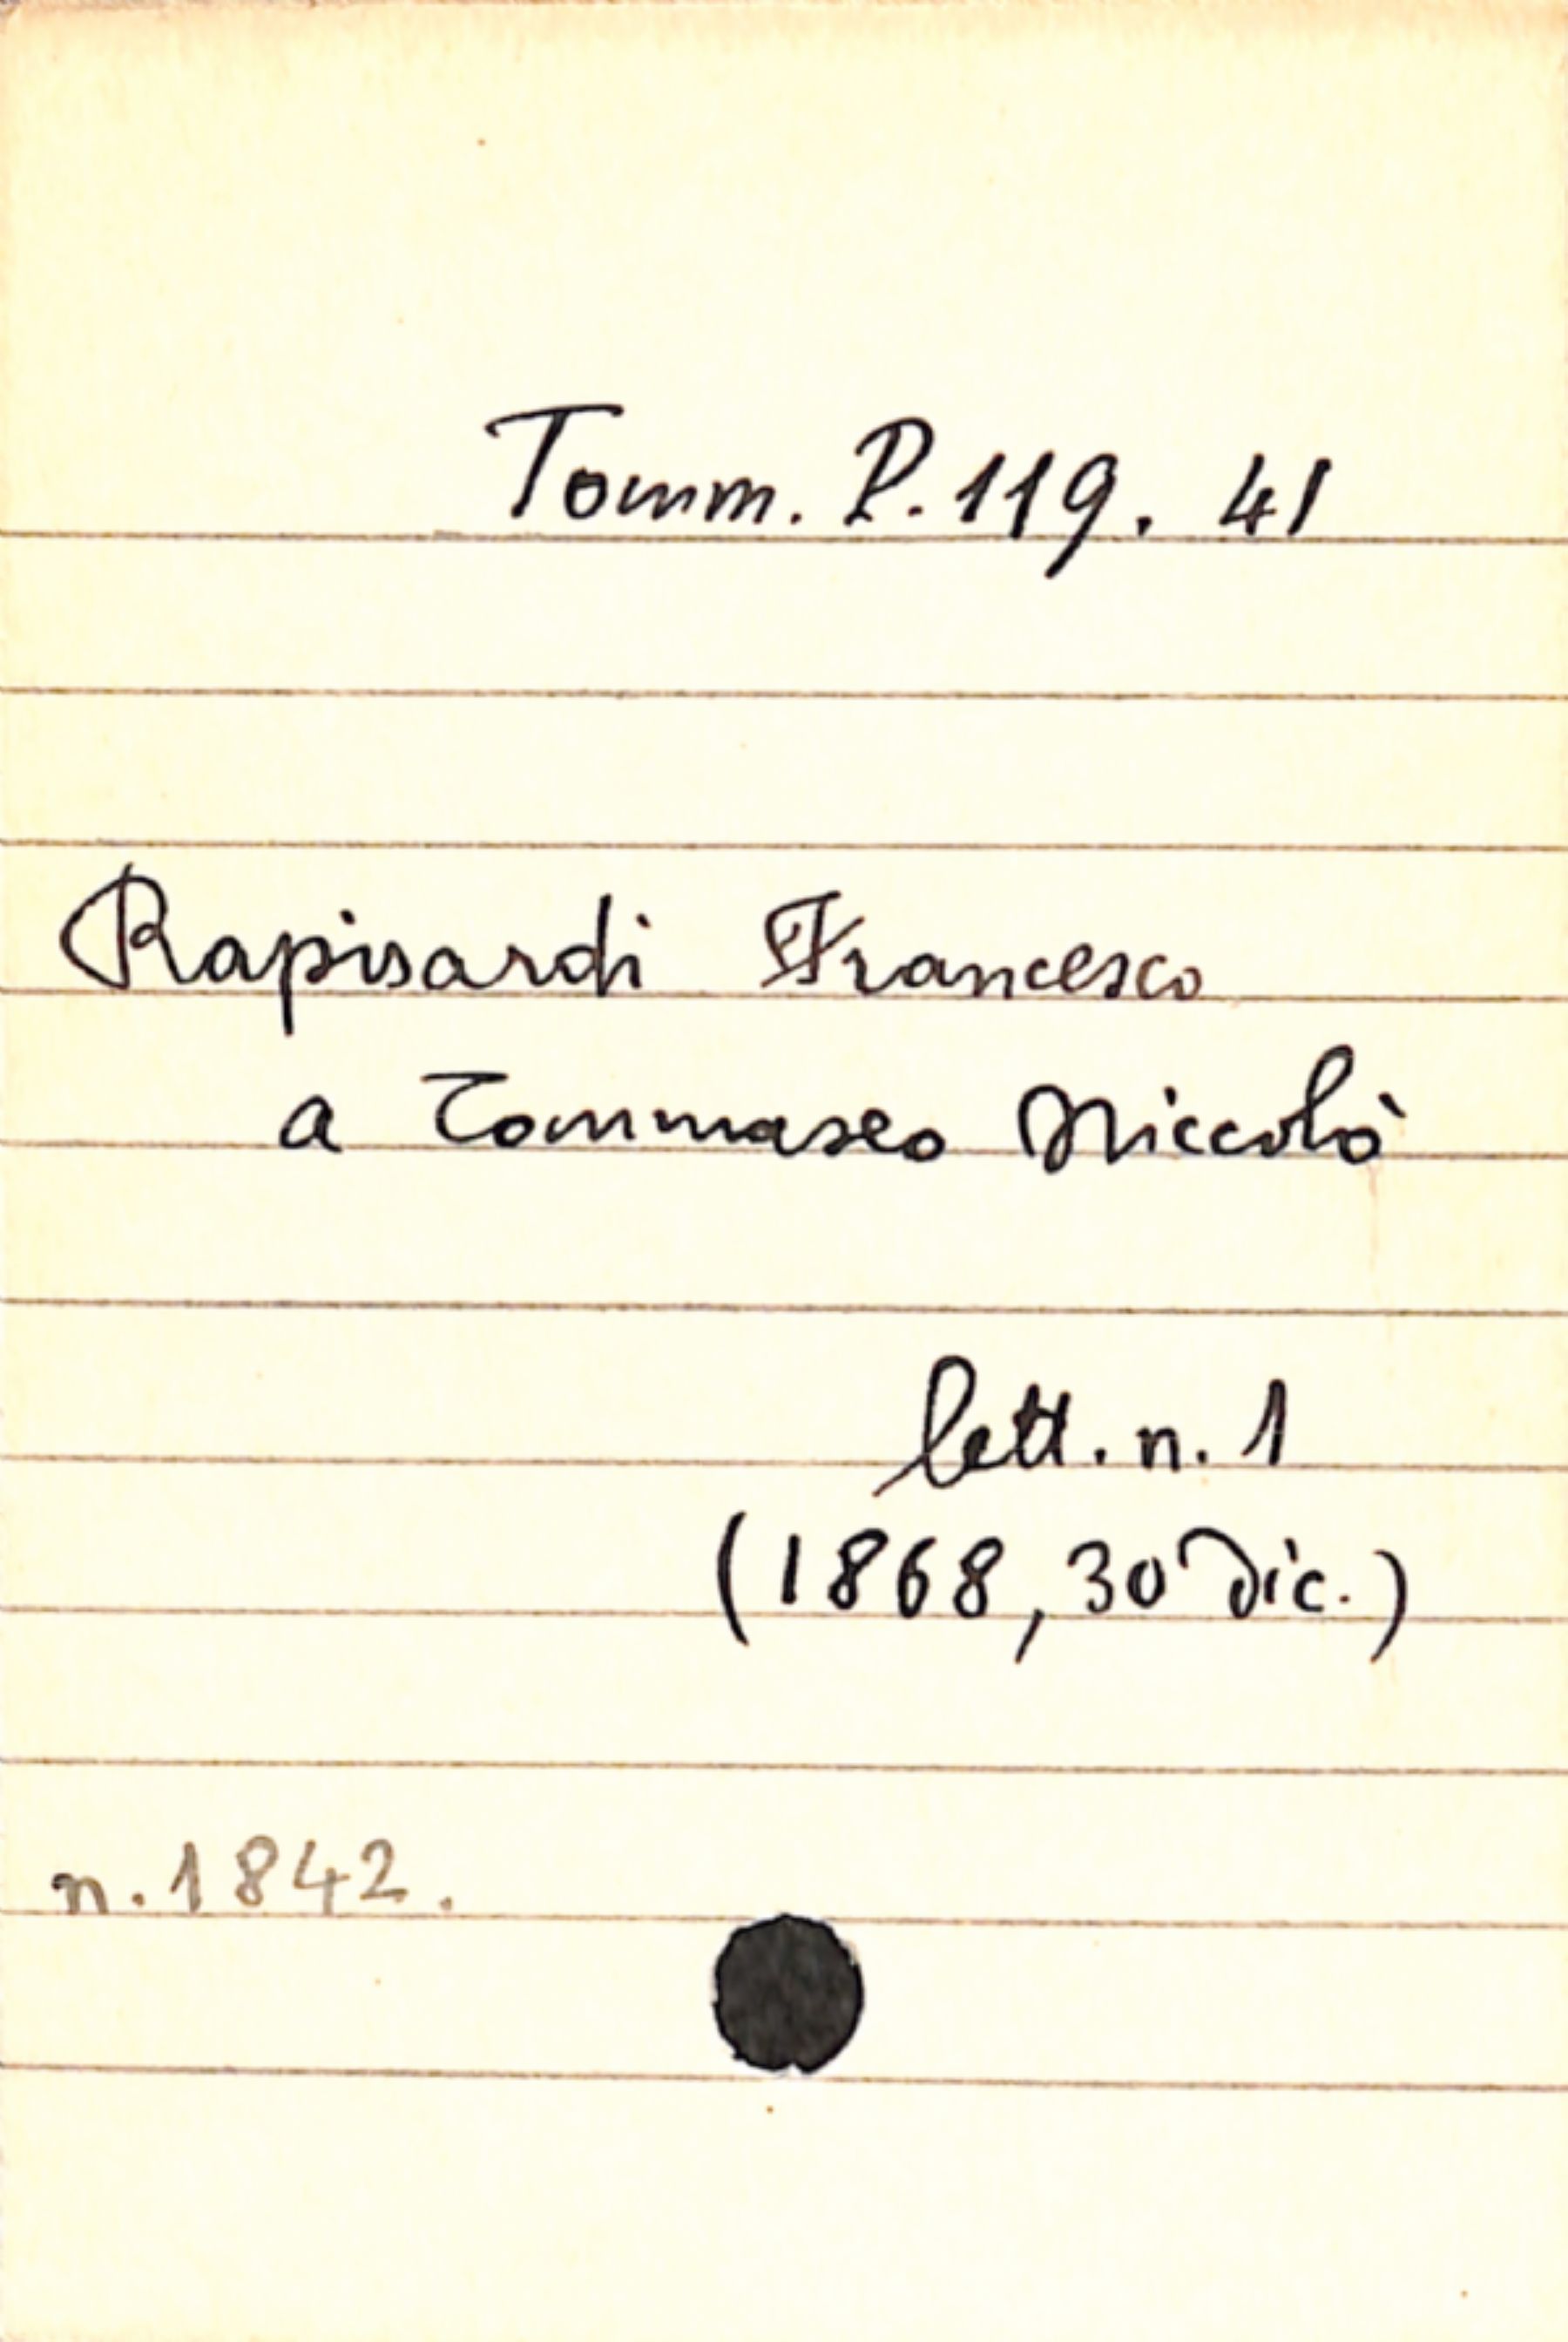 Tomm. P. 119. 41
Rapisardi Francesco
a Tommaseo Niccolò
lett. n. 1
(1868, 30 dic.)
n. 1842.